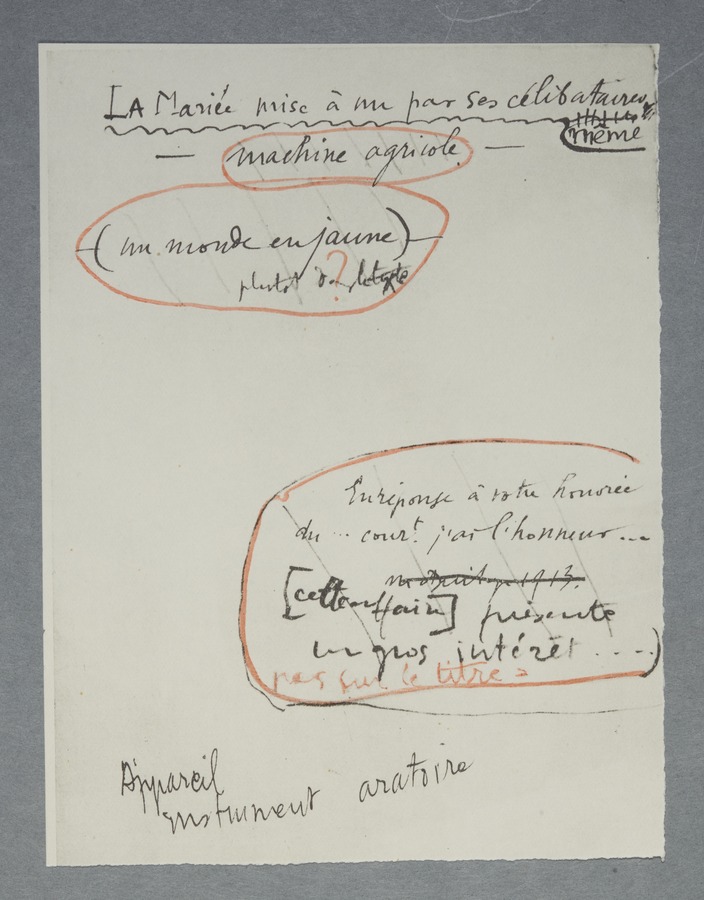 LA Mariée mise à nu par ses célibataires,
même
— machine agricole —
(un monde en jaune)
?
plutôt dans le texte
En réponse à votre honorée
du ... cour.t j'ai l'honneur ...
1913.
[cette affaire] présente
un gros intérêt ....)
pas sur le titre
Appareil
instrument aratoire